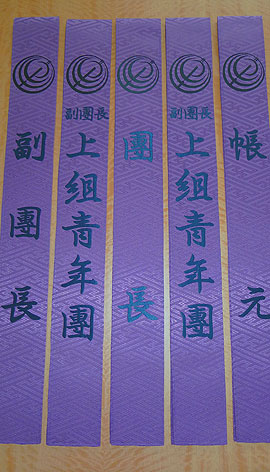 副團長
副團長
上組青年團
團長
副團長
上組青年團
帳元